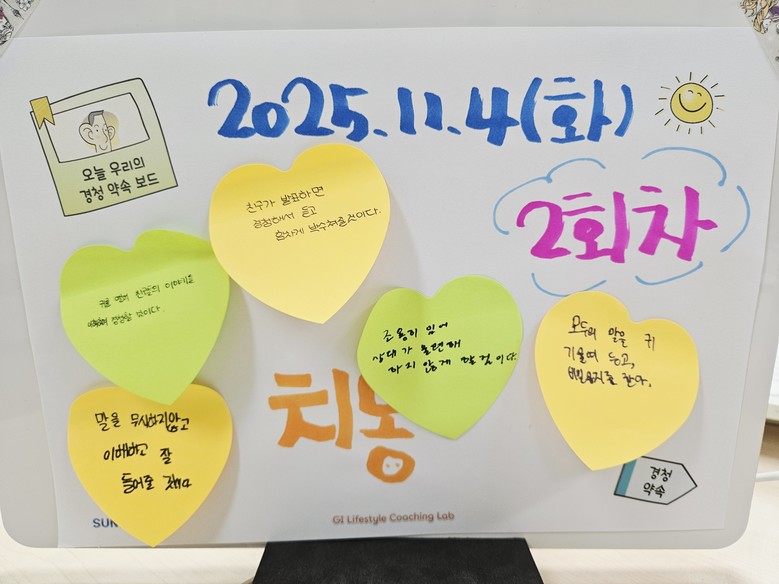 2025.11.4(화)
오늘 우리의
경청 약속 보드
2회차
친구가 발표하면
경청해서 듣고
힘차게 박수쳐줄것이다.
귀를 열어 친구들의 이야기를
경청할 것이다.
조용히 있어
상대가 불편해
하지 않게 할 것이다
모두의 말을 귀
기울여 듣고,
비밀유지를 한다.
치동
말을 무시하지않고
이해하고 잘
들어줄 것이다
경청
약속
SUN
GI Lifestyle Coaching Lab